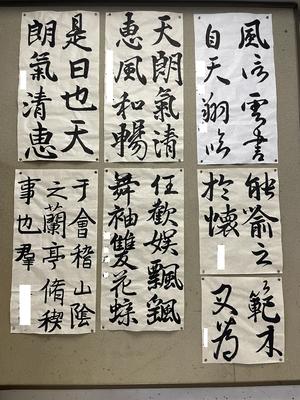 風信雲書
自天翔臨
天朗氣清
恵風和暢
是日也天
朗氣清恵
能喻之
於懐
又為
任歡娯飄颻
舞袖雙花蝶
于會稽山陰
之蘭亭脩稧
事也羣